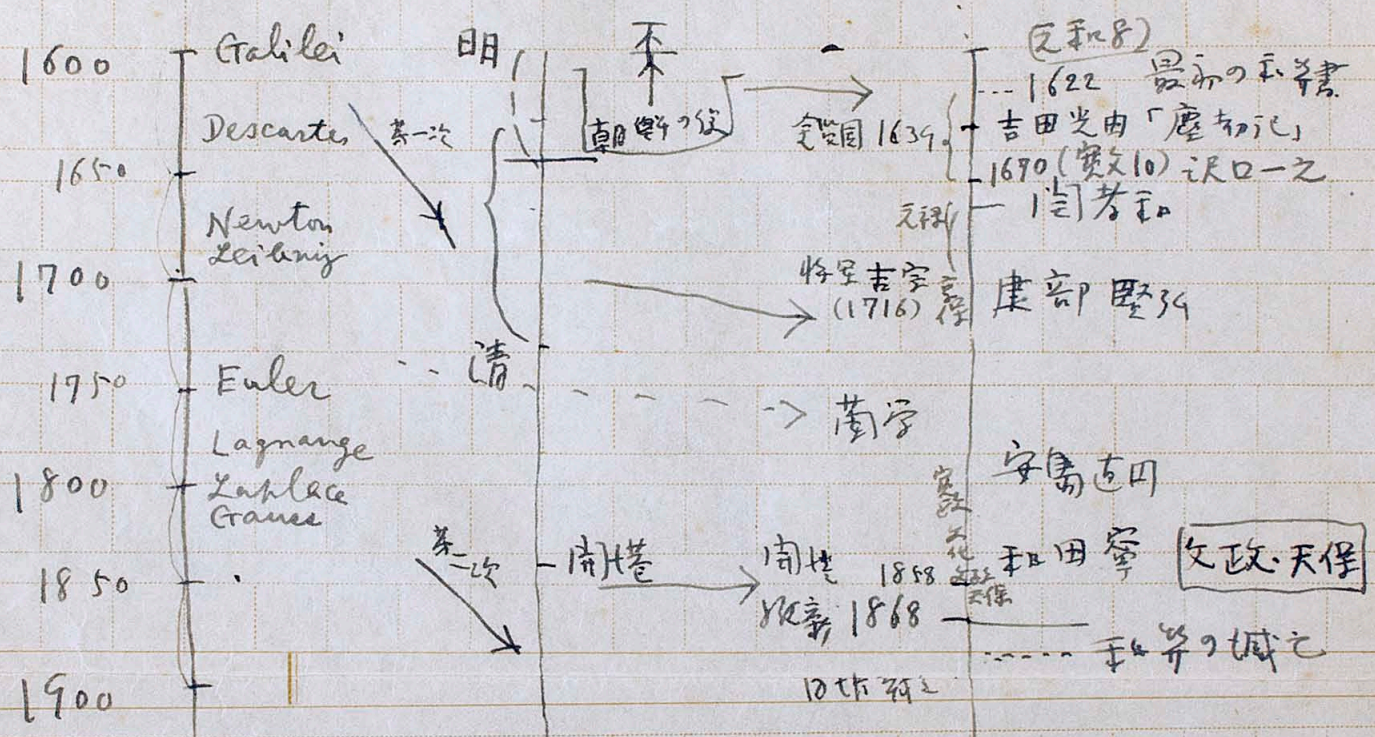 1600
1650
1700
1750
1800
1850
1900
Galilei
Descartes
Newton
Leibniz
Euler
Lagrange
Laplace
Gauss
第一次
第二次
明
清
開港
朝鮮の役
鎖国 1639
元禄
将軍吉宗
(1716)
享保
蘭学
開港 1858
維新 1868
寛政
文化
文政
天保
(元和8)
1622 最初の和算書
吉田光由「塵劫記」
1670 (寛文10) 沢口一之
関孝和
建部賢弘
安島直円
和田寧
文政・天保
和算の滅亡